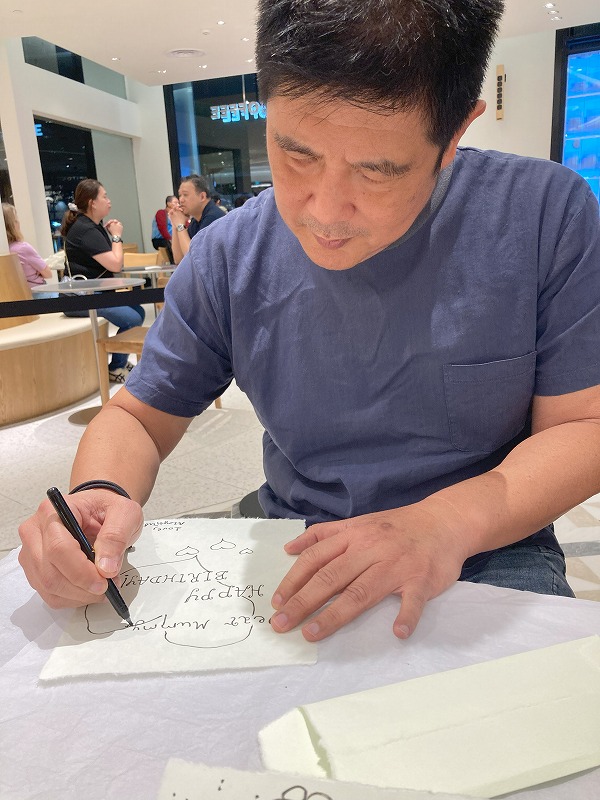 COFFEE
Dear Mummy
HAPPY
BIRTHDAY!
Love,